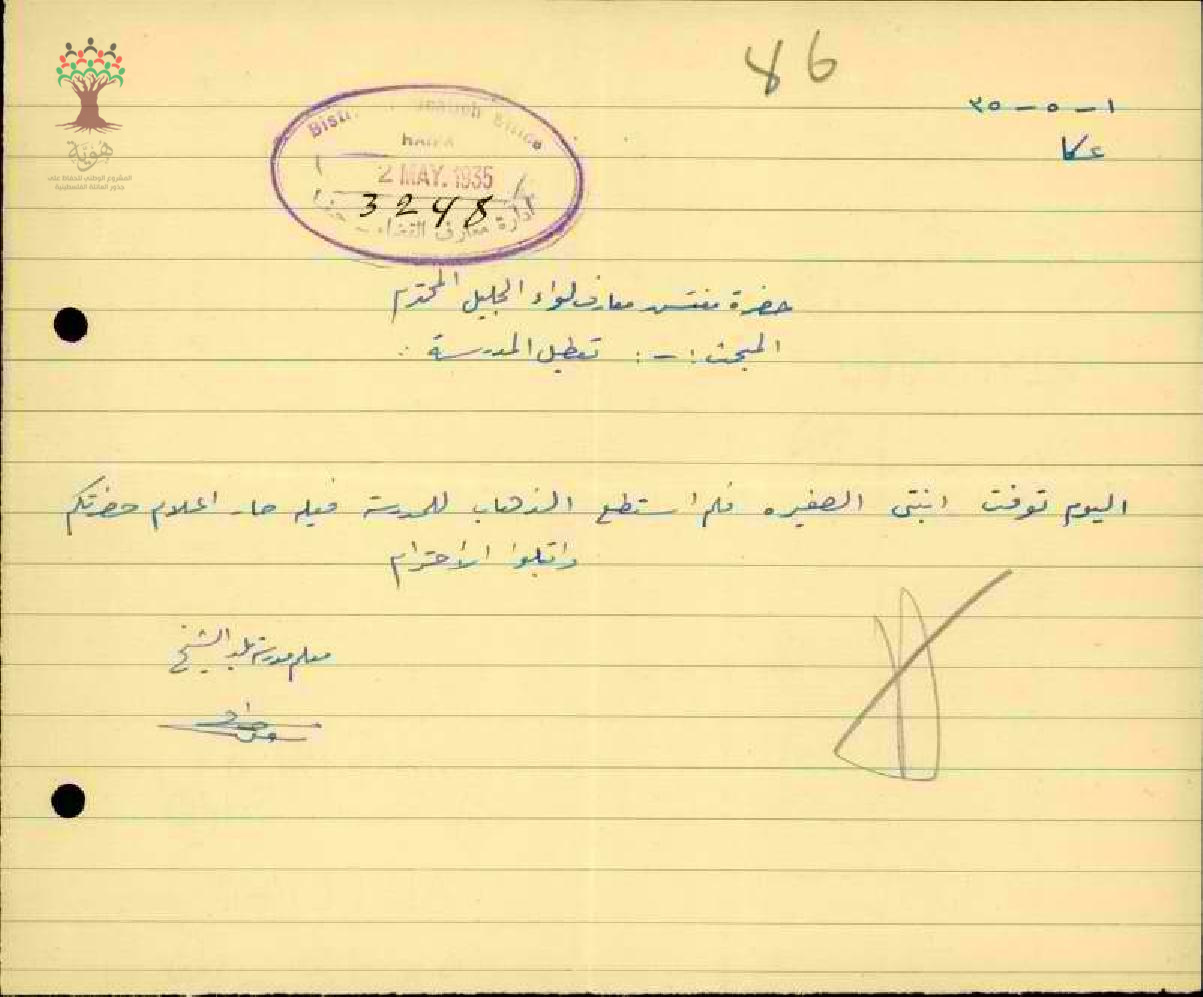 86
١ - ٥ - ٣٥
عكا
هويّة
المشروع الوطني للحفاظ على
جذور العائلة الفلسطينية
HAIFA
2 MAY. 1935
3248
ادارة معارف
حضرة مفتش معارف لواء الجليل المحترم
المبحث :-: تعطيل المدرسة :
اليوم توفت ابنتي الصغيره فلم استطع الذهاب للمدرسة فيله صار اعلام حضرتكم
واقبلوا الاحترام
معلم مدرسة بلد الشيخ